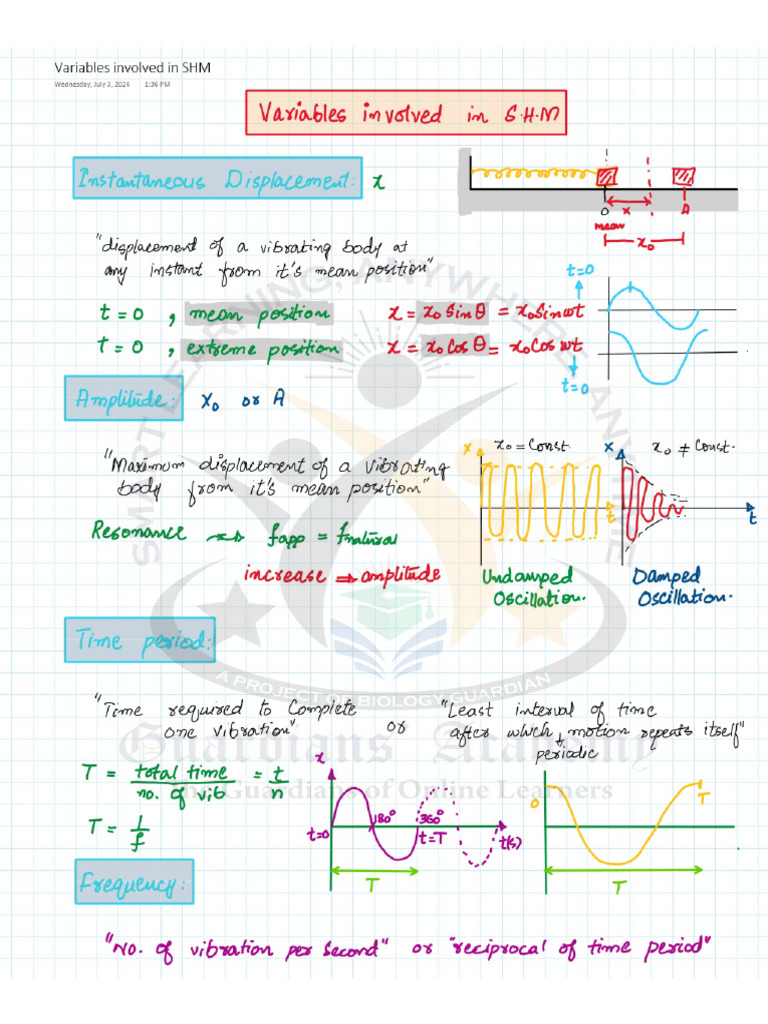 Variables involved in SHM
Wednesday, July 3, 2024 1:36 PM
Variables involved in S.H.M
Instantaneous Displacement: x
O x A
mean
x₀
"displacement of a vibrating body at
any instant from it's mean position"
t = 0 , mean position x = x₀ Sin θ = x₀ Sin ωt
t = 0 , extreme position x = x₀ Cos θ = x₀ Cos ωt
t=0
t=0
Amplitude: x₀ or A
"Maximum displacement of a vibrating
body from it's mean position"
Resonance ⇝ fapp = fnatural
increase ⇒ amplitude
x x₀ = Const t
Undamped
Oscillation.
x x₀ ≠ Const. t
Damped
Oscillation.
Time period:
"Time required to Complete
one vibration"
or
"Least interval of time
after which motion repeats itself"
periodic
T = total time / no. of vib = t / n
T = 1 / f
x
t=0 180° 360°
t=T t(s)
T
0 T
T
Frequency:
"No. of vibration per second" or "reciprocal of time period"
SMART LEARNING, ANYWHERE ANYTIME
A PROJECT OF BIOLOGY GUARDIAN
Guardians Academy
The Guardians of Online Learners